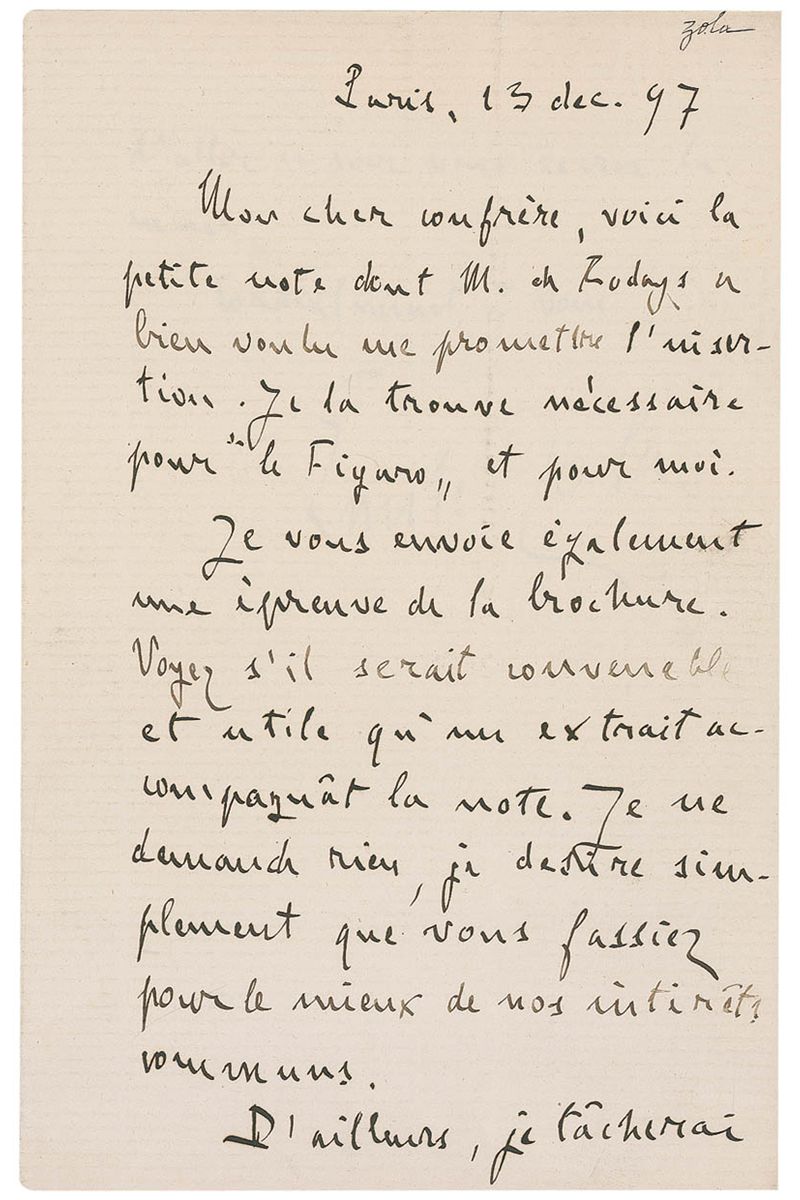 zola
Paris, 13 dec. 97
Mon cher confrère, voici la
petite note dont M. de Rodays a
bien voulu me promettre l'inser-
tion. Je la trouve nécessaire
pour "le Figaro" et pour moi.
Je vous envoie également
une épreuve de la brochure.
Voyez s'il serait convenable
et utile qu'un extrait ac-
compagnât la note. Je ne
demande rien, je désire sim-
plement que vous fassiez
pour le mieux de nos intérêts
communs.
D'ailleurs, je tâcherai